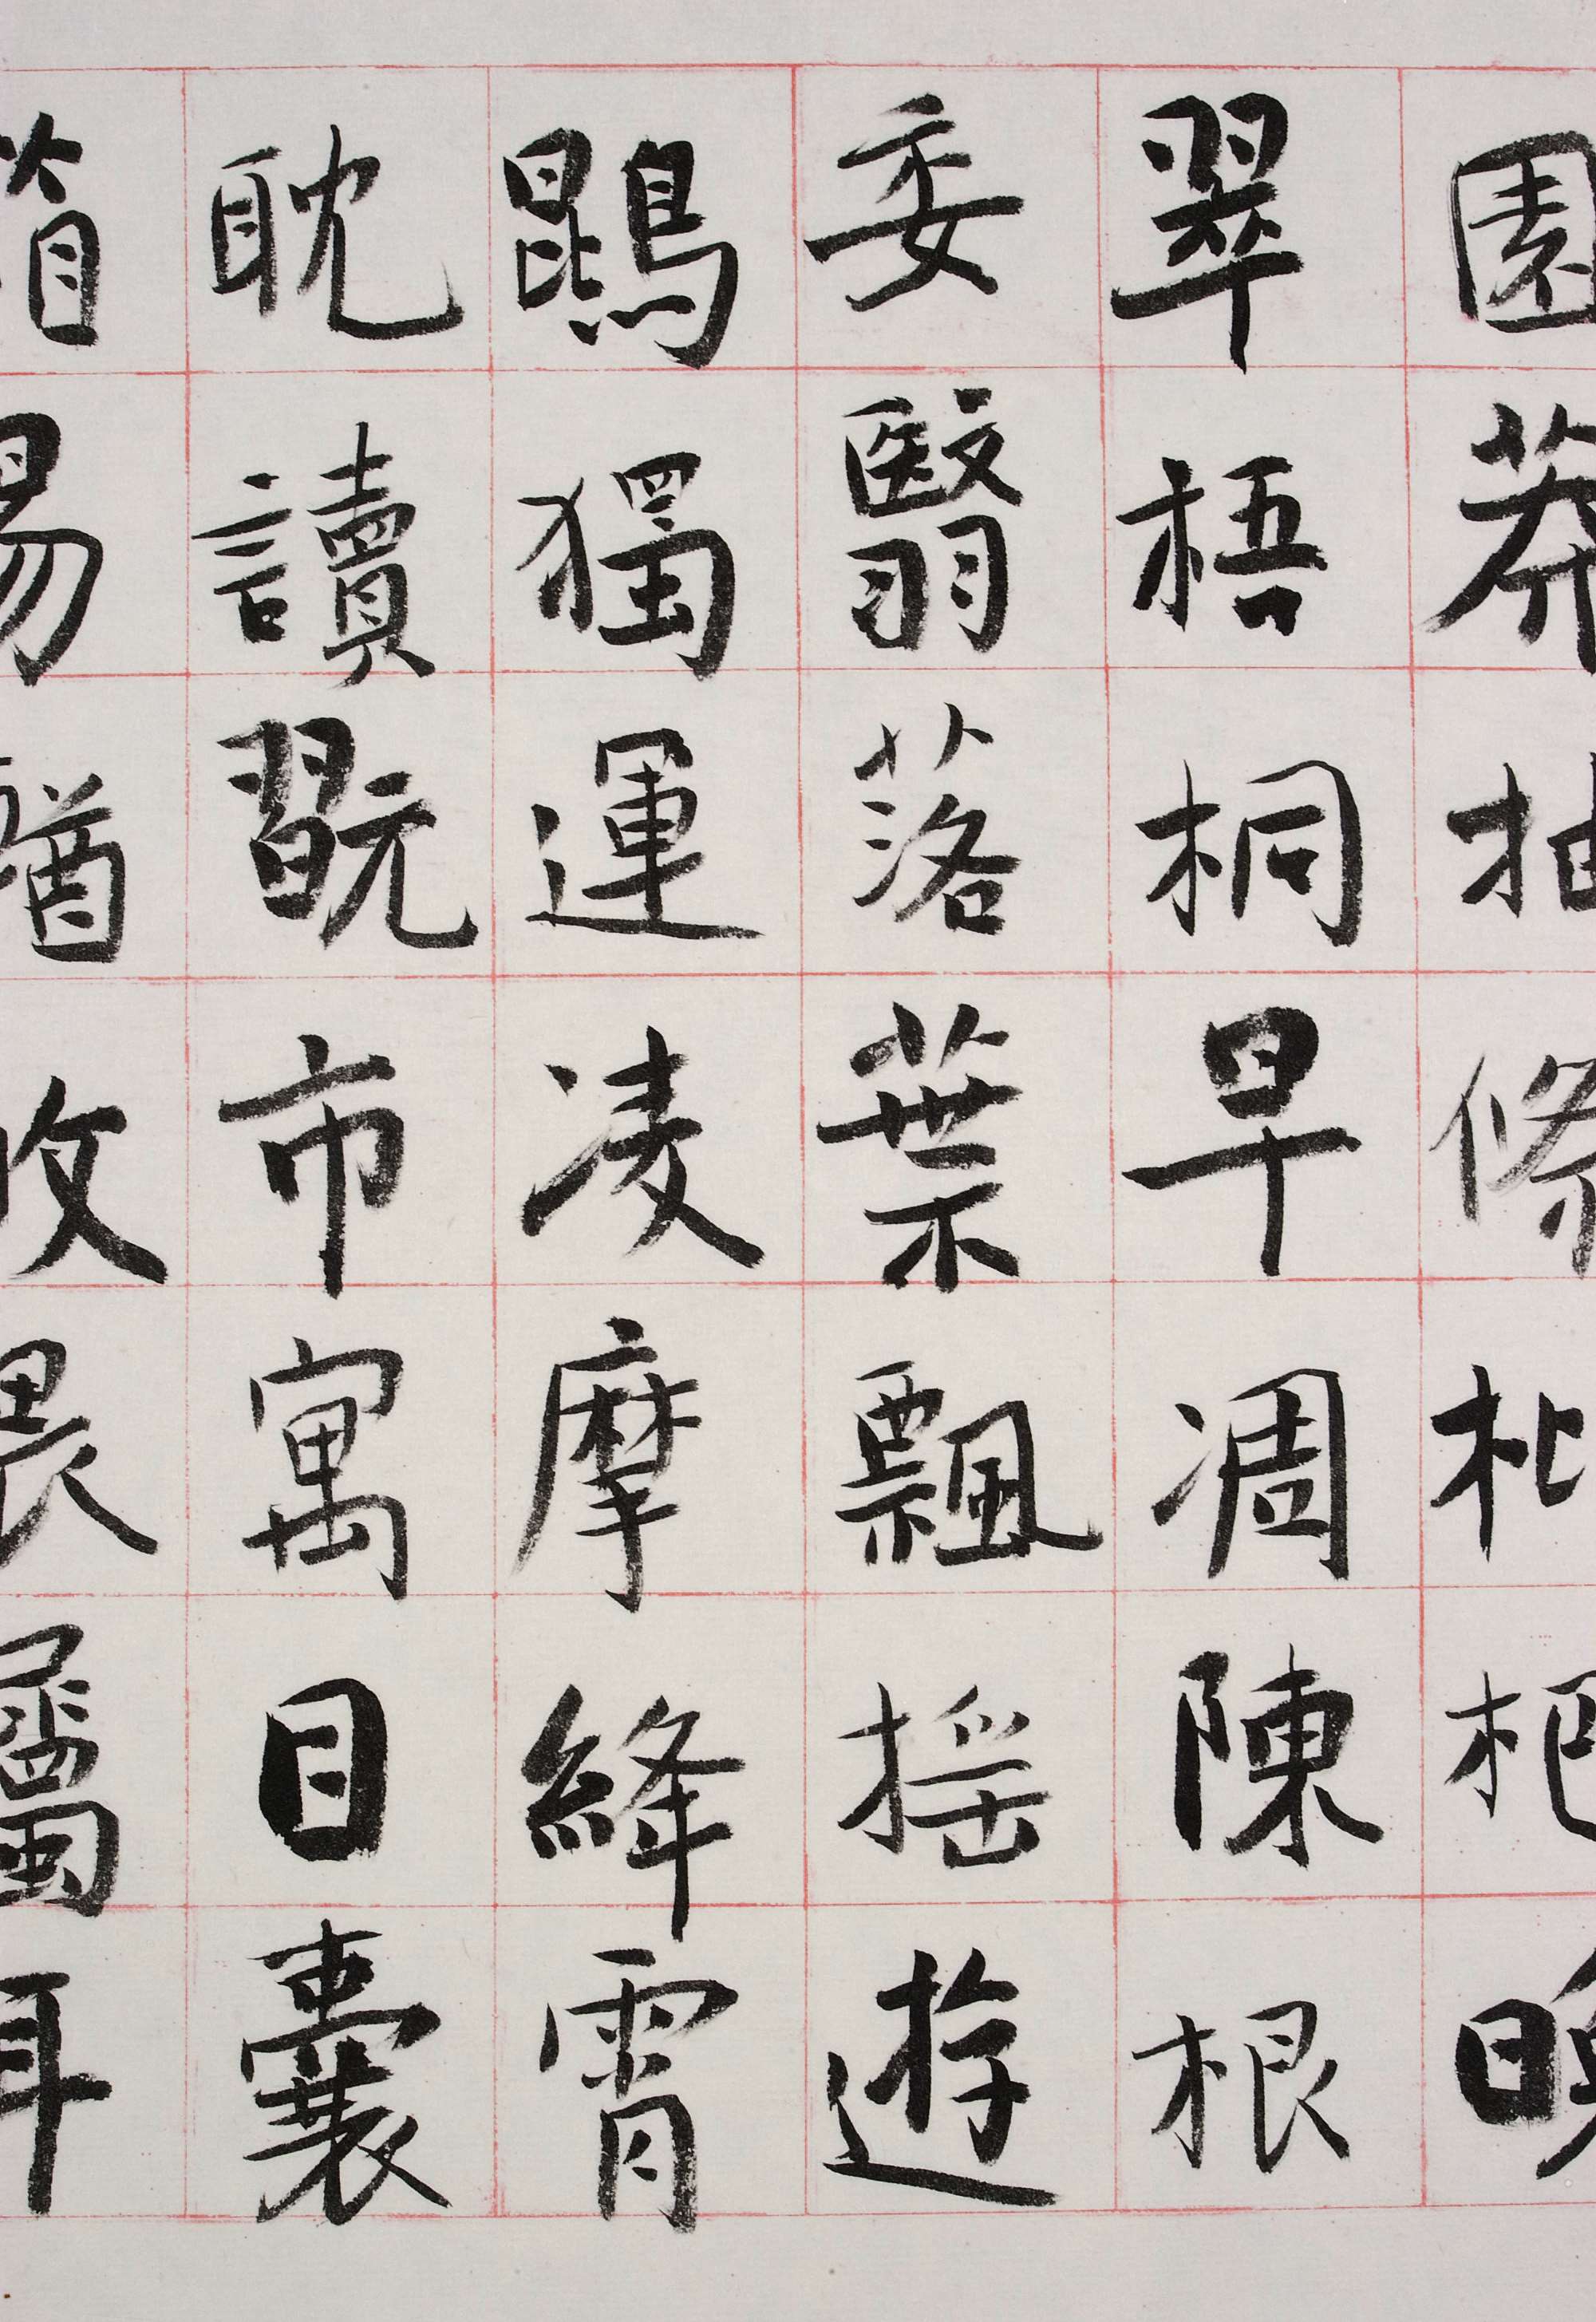 園莽抽條枇杷晚
翠梧桐早凋陳根
委翳落葉飄摇遊
鵾獨運凌摩絳霄
耽讀翫市寓目囊
箱易輶攸畏屬耳